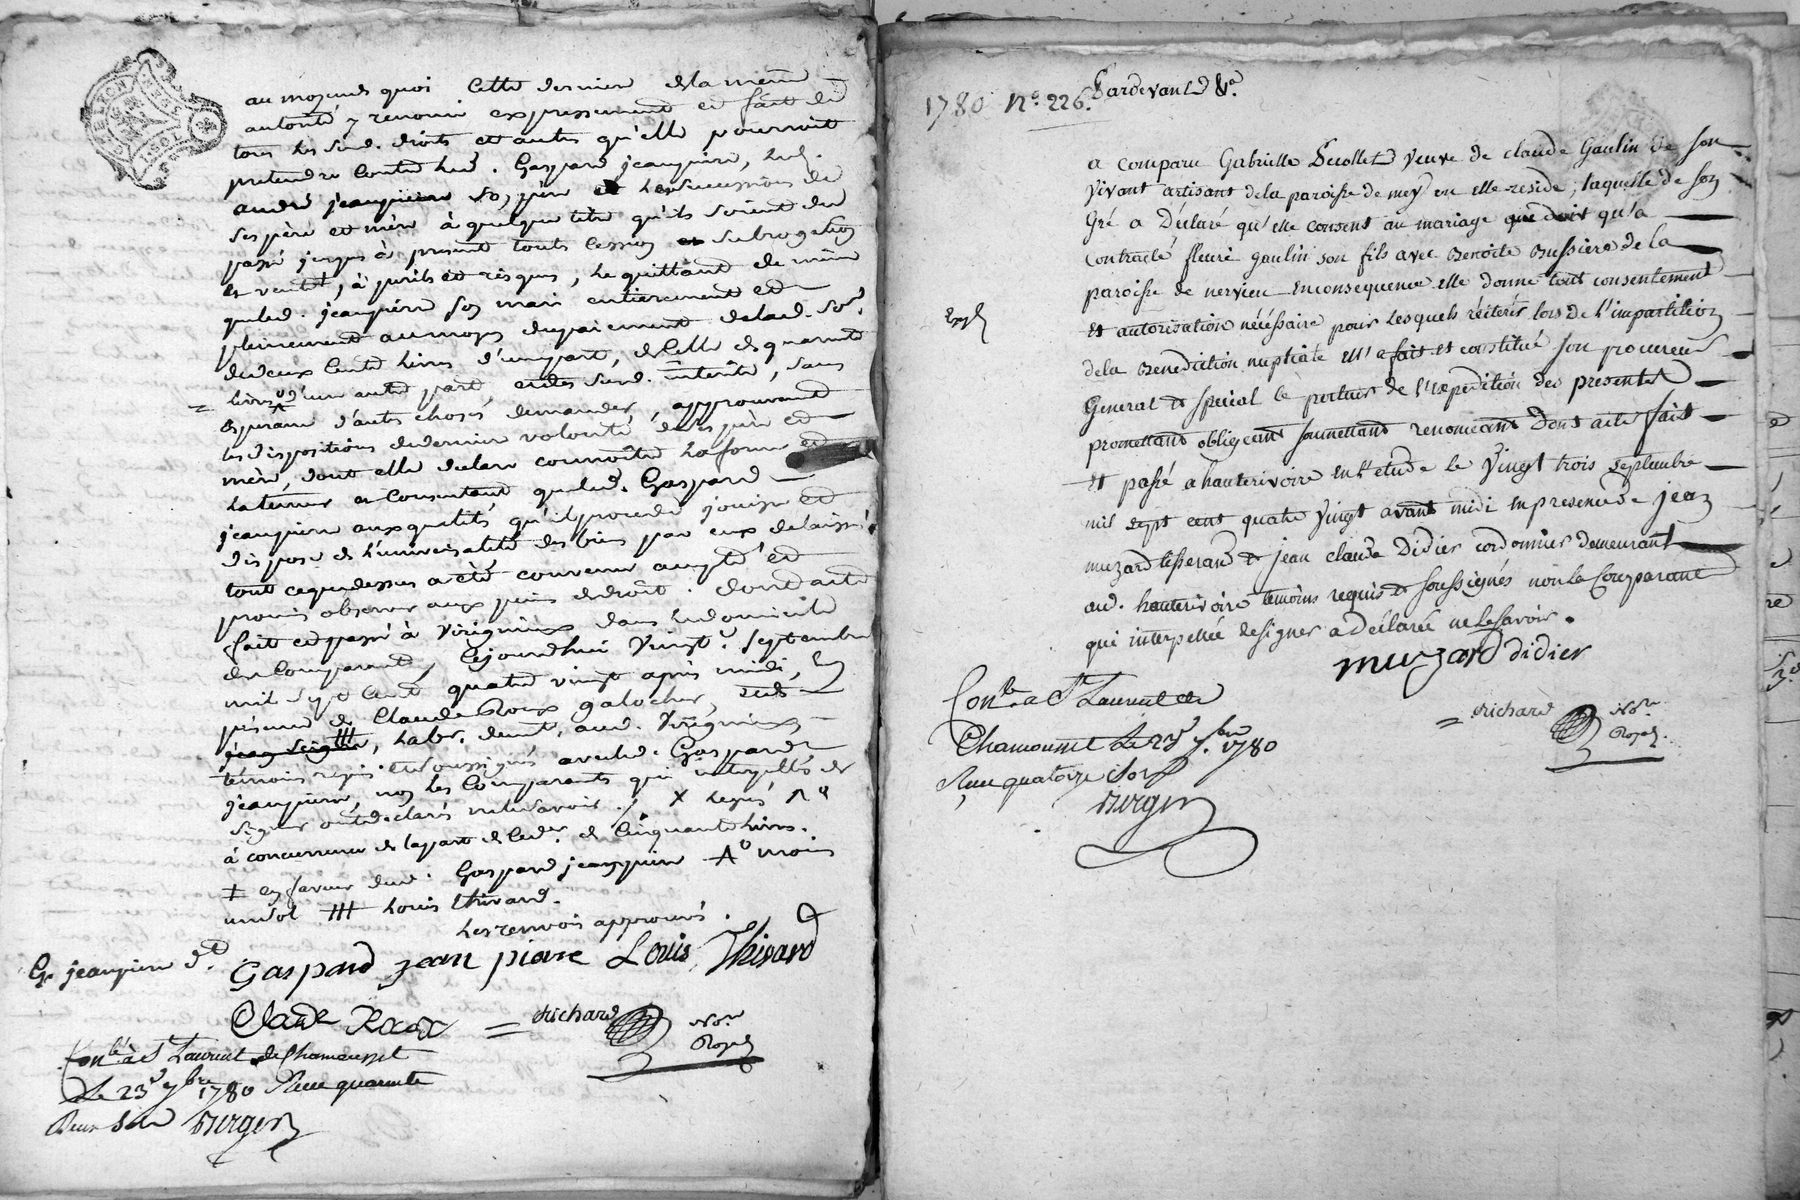 au moyend quoi cette derniere de la meme
autorité y renonce expressement et fait de
tous les susd. droits et autres qu'elle pourroit
pretendre contre led. Gaspard jeanpierre, led.
andré jeanpierre son pere et les successions de
ses père et mère à quelque titre qu'ils soient du
passé jusqu'à présent touts cession et subrogation
et vente, à perils et risques, le quittant de même
queled. jeanpierre son mari entierement et
pleinement au moyen dupaiement delad. so.e
dedeux cents livres d'unepart, de celle de quarante
livres d'une autre part, et des susd. interêts, sans
esperance d'autre chose demander, approuvant
les dispositions de derniere volonté de ses père et
mère, dont elle declare connoître la forme et
la teneur et consentant queled. Gaspard
jeanpierre aux qualités qu'il procede jouisse et
dispose de l'universalité des biens par eux delaissés
tout cequedessus a été convenu accepté et
promis observer aux peines de droit. dont acte
fait et passé à Virigneux dans le domicile
des Comparants, cejourdhui vingt. septembre
mil sept cent quatre vingt après midi, en
présence de Claude Roux galocher, et de
jean, labr. demt. aud. Virigneux
temoins requis et soussignés avecled. Gaspard
jeanpierre, non les Comparants qui interpellés de
signer ont déclarés nele savoir ./. X
à concurrence de lapart de de cinquante livres.
‡ en faveur dud. Gaspard jeanpierre A° moins
undol ⧻ Louis thivard.
les renvois approuvés.
G. jeanpierre Gaspard jean pierre Louis Thivard
Claude Roux = Richard No.re Royal
Con.lé à St Laurent de Chamousset
Le 23e 7bre 1780 Reçu quarante
deux sols Berger
1780 N.° 226. Pardevant &.a
a comparu Gabrielle Decollet veuve de claude Gaulin de son
vivant artisant dela paroisse de mey ou elle reside, laquelle de son
Gré a Déclaré qu'elle consent au mariage que doit qu'a
contracté fleuri gaulin son fils avec Benoite Bussiere de la
paroisse de nervieu Enconsequence elle donne tout consentement
Expé
et autorisation nécéssaire pour lesquels réiterér lors de l'impartition
dela Benediction nuptiale Elle a fait et constitué son procureur
General et special le porteur de l'Expedition des presentes
promettant obligeant soumettant renonceant Dont acte fait
et passé a hauterivoire En l'etude le vingt trois septembre
mil sept cent quatre vingt avant midi En presence de jean
muzard tisserand et jean claude Didier cordonnier demeurant
aud. hauterivoire temoins requis et soussignés non la Comparante
qui interpellée de signer a déclarée ne le savoir.
muzard didier
= Richard No.re Royal
Con.lé a St Laurent de
Chamousset Le 23e 7bre 1780
Reçu quatorze sols
Berger